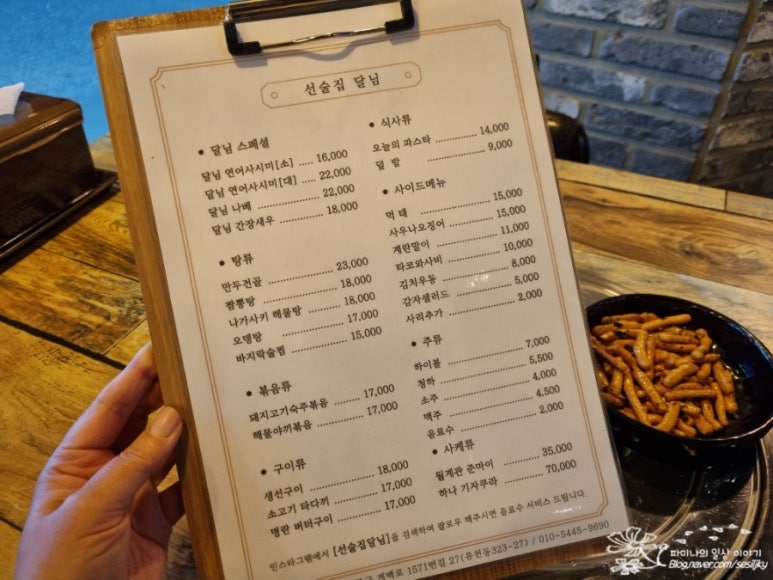 선술집 달님
● 달님 스페셜
달님 연어사시미[소] ..... 16,000
달님 연어사시미[대] ..... 22,000
달님 나베 ................ 22,000
달님 간장새우 ............ 18,000
● 탕류
만두전골 ................ 23,000
짬뽕탕 .................. 18,000
나가사키 해물탕 ......... 18,000
오뎅탕 .................. 17,000
바지락술찜 .............. 15,000
● 볶음류
돼지고기숙주볶음 ........ 17,000
해물야끼볶음 ............ 17,000
● 구이류
생선구이 ................ 18,000
소고기 타다끼 ........... 17,000
명란 버터구이 ........... 17,000
● 식사류
오늘의 파스타 ........... 14,000
덮 밥 ................... 9,000
● 사이드메뉴
먹 태 ................... 15,000
사우나오징어 ............ 15,000
계란말이 ................ 11,000
타코와사비 .............. 10,000
김치우동 ................ 8,000
감자샐러드 .............. 5,000
사리추가 ................ 2,000
● 주류
하이볼 .................. 7,000
청하 .................... 5,500
소주 .................... 4,000
맥주 .................... 4,500
음료수 .................. 2,000
● 사케류
월계관 준마이 ........... 35,000
하나 기자쿠라 ........... 70,000
인스타그램에서 [선술집달님]을 검색하여 팔로우 해주시면 음료수 서비스 드립니다.
계백로 1571번길 27(유천동323-27) / 010-5445-9690
파이나의 일상 이야기
Blog.naver.com/sesiljky